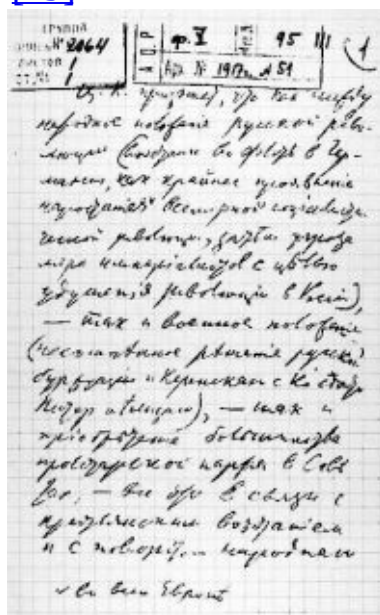 ГРУППА
№ 2064
ЛИСТОВ 1
1
А О Р ф. I 95 III
Арх № 1917 г. А 51
Ц. К. признает, что как между-
народное положенiе русской рево-
люцiи (возстанiе во флотѣ в Гер-
манiи, как крайнее проявленiе
наростанiя всемiрной социалисти-
ческой революцiи, затѣм угроза
мира имперiалистов с цѣлью
удушенiя революцiи в Россiи),
— так и военное положенiе
(несомнѣнное рѣшенiе русской
буржуазiи и Керенскаго с Ко сдать
Питер нѣмцам), — так и
прiобрѣтенiе большинства
пролетарской партiей в Сове
тах, — все это в связи с
крестьянским возстанiем
и с поворотом народнаго
во всей Европѣ